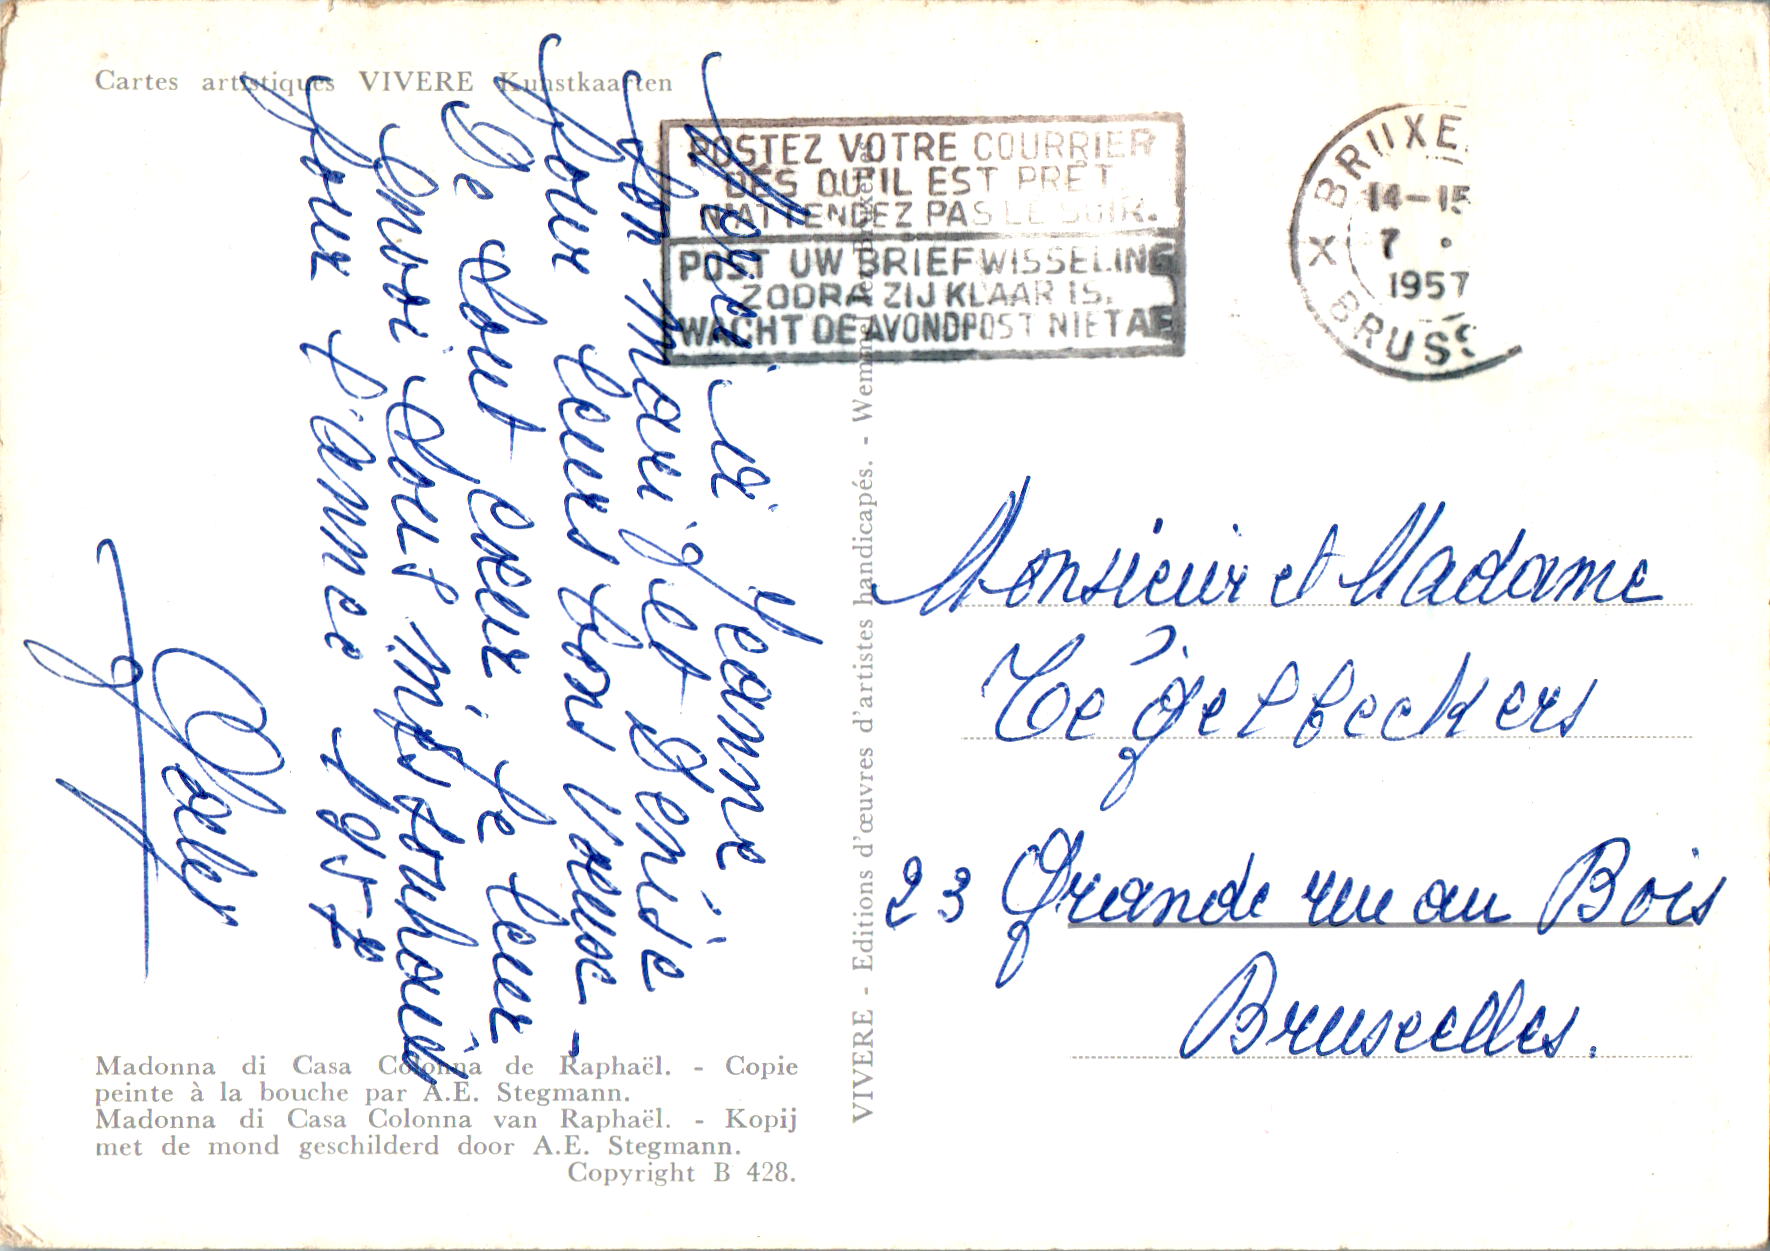 Cartes artistiques VIVERE Kunstkaarten
POSTEZ VOTRE COURRIER
DÈS QU'IL EST PRÊT
N'ATTENDEZ PAS LE SOIR.
POST UW BRIEFWISSELING
ZODRA ZIJ KLAAR IS.
WACHT DE AVONDPOST NIET AF
BRUXE
14-15
7
1957
BRUSS
Merci à Jeanne
Son Mari, et Denise
Pour leurs bons voeux -
De tout coeur, je leur
envoi tous mes souhaits
Pour l'année 1957
Monsieur et Madame
Tégelbeckers
23 Grande rue au Bois
Bruxelles.
VIVERE - Editions d'œuvres d'artistes handicapés. - Wemmel lez Bruxelles
Madonna di Casa Colonna de Raphaël. - Copie
peinte à la bouche par A.E. Stegmann.
Madonna di Casa Colonna van Raphaël. - Kopij
met de mond geschilderd door A.E. Stegmann.
Copyright B 428.